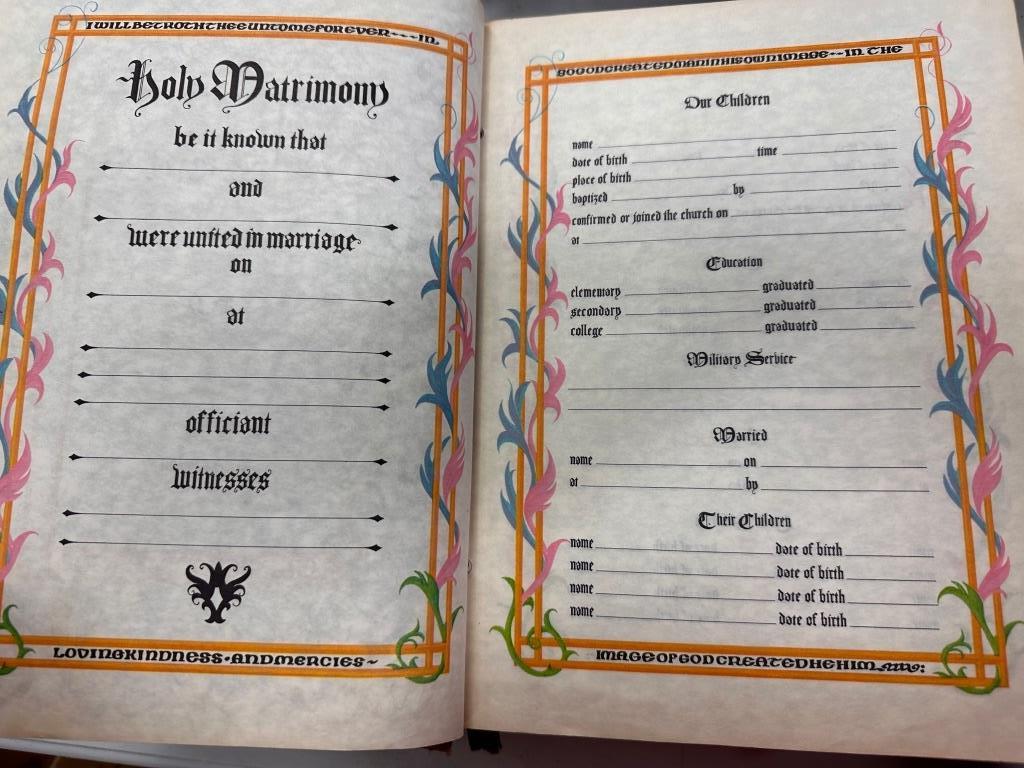 IWILLBETROTHTHEEUNTOMEFOREVER----IN
Holy Matrimony
be it known that
and
were united in marriage
on
at
officiant
witnesses
LOVINGKINDNESS·ANDMERCIES~
SOGODCREATEDMANINHISOWNIMAGE--IN THE
Our Children
name
date of birth time
place of birth
baptized by
confirmed or joined the church on
at
Education
elementary graduated
secondary graduated
college graduated
Military Service
Married
name on
at by
Their Children
name date of birth
name date of birth
name date of birth
name date of birth
IMAGEOFGODCREATEDHEHIM